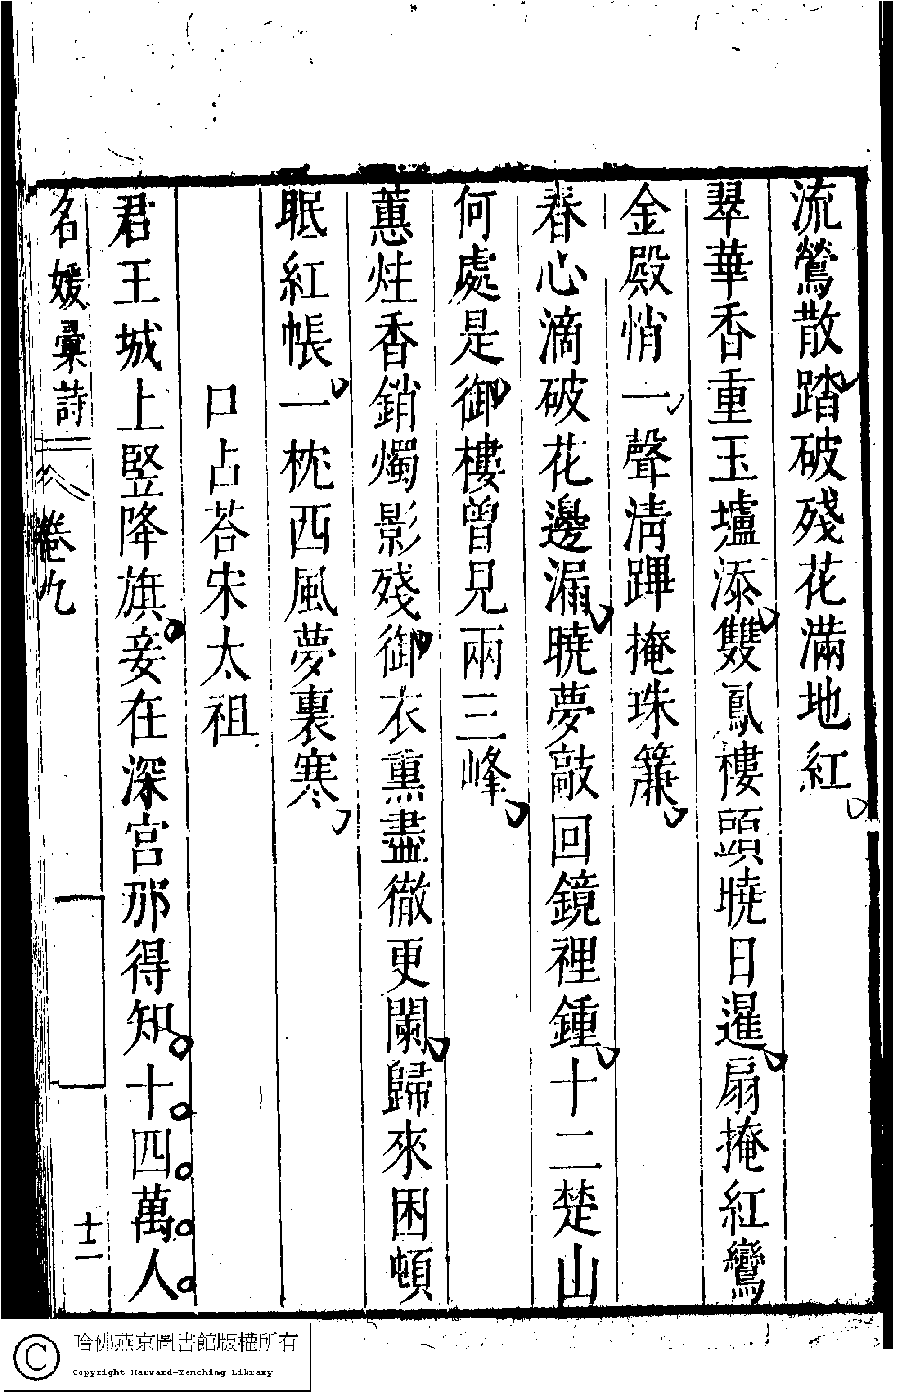 流鶯散踏破殘花滿地紅
翠華香重玉爐添雙鳳樓頭曉日暹扇掩紅鸞
金殿悄一聲清蹕掩珠簾
春心滴破花邊漏曉夢敲回鏡裡鍾十二楚山
何處是御樓曾見兩三峰
蕙炷香銷燭影殘御衣熏盡徹更闌歸來困頓
眠紅帳一枕西風夢裏寒
口占荅宋太祖
君王城上竪降旗妾在深宮那得知十四萬人
名媛彙詩 卷九 十二
哈佛燕京圖書館版權所有
Copyright Harvard-Yenching Library